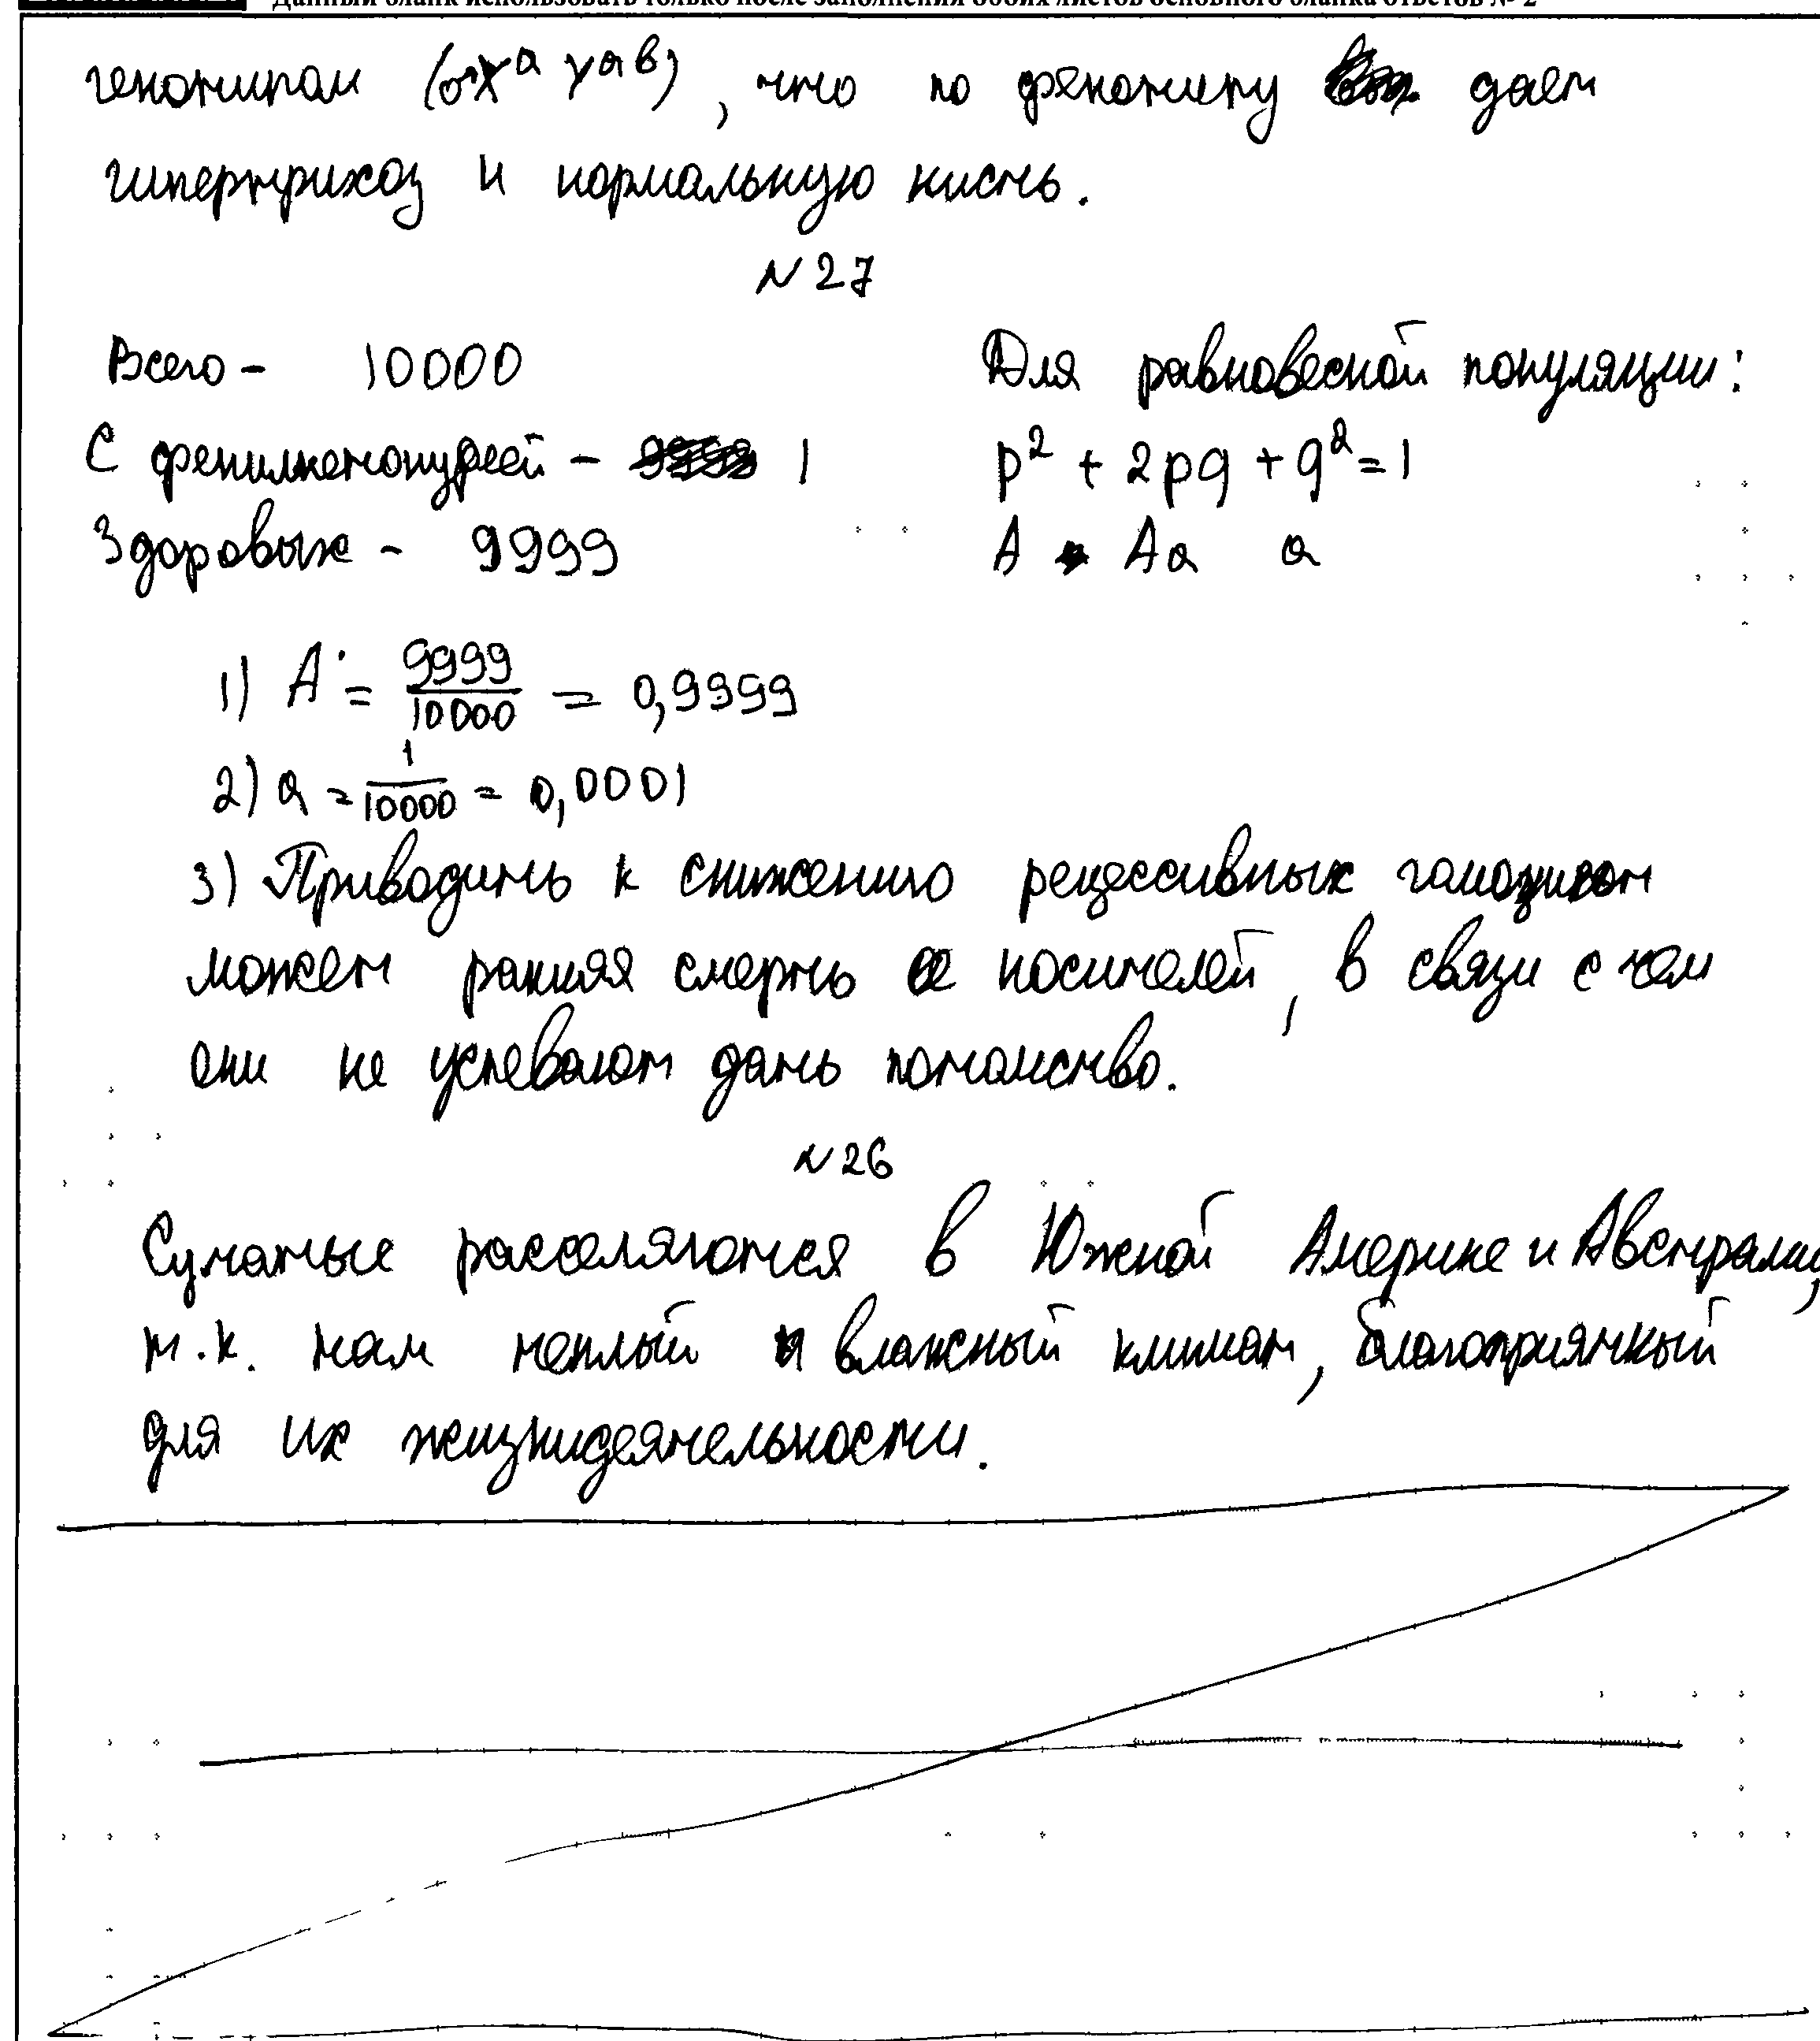 Данный бланк использовать только после заполнения обоих листов основного бланка ответов № 2
генотипом (♂Xᵃ Yᵃᵇ), что по фенотипу дает
гипертрихоз и нормальную кисть.
N 27
Всего - 10000
Для равновесной популяции:
С фенилкетонурией - 1
p² + 2pq + q² = 1
Здоровых - 9999
A Aa a
1) A = 9999/10000 = 0,9999
2) a = 1/10000 = 0,0001
3) Приводить к снижению рецессивных гомозигот
может ранняя смерть носителей, в связи с чем
они не успевают дать потомство.
N 26
Сумчатые расселяются в Южной Америке и Австралии,
т.к. там теплый и влажный климат, благоприятный
для их жизнидеятельности.